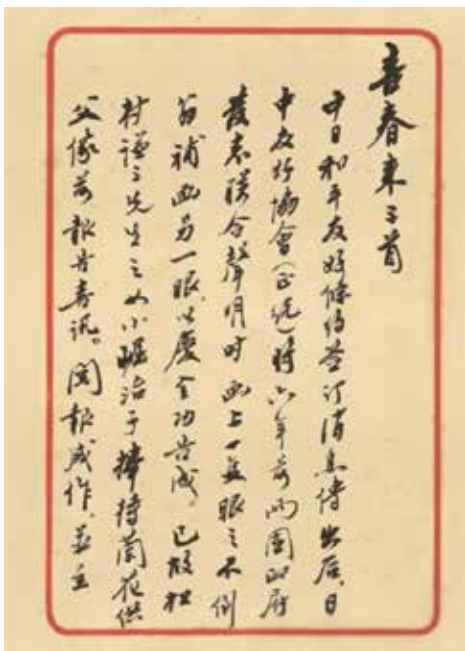 喜春来三首
中日和平友好條约签订消息传出后,日
中友好协會(正统)将六年前两国政府
發表联合聲明时画上一隻眼之不倒
翁補画另一眼,以慶全功告成。已故松
村謙三先生之女小堀治子捧持蘭花供
父像前報告喜讯。闻報感作,並